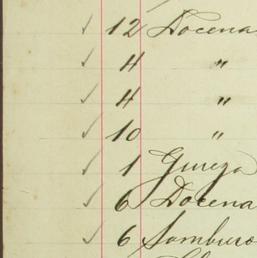 ✓ 12 Docena
✓ 4 "
✓ 4 "
✓ 10 "
✓ 1
✓ 6 Docena
✓ 6 Sombrero